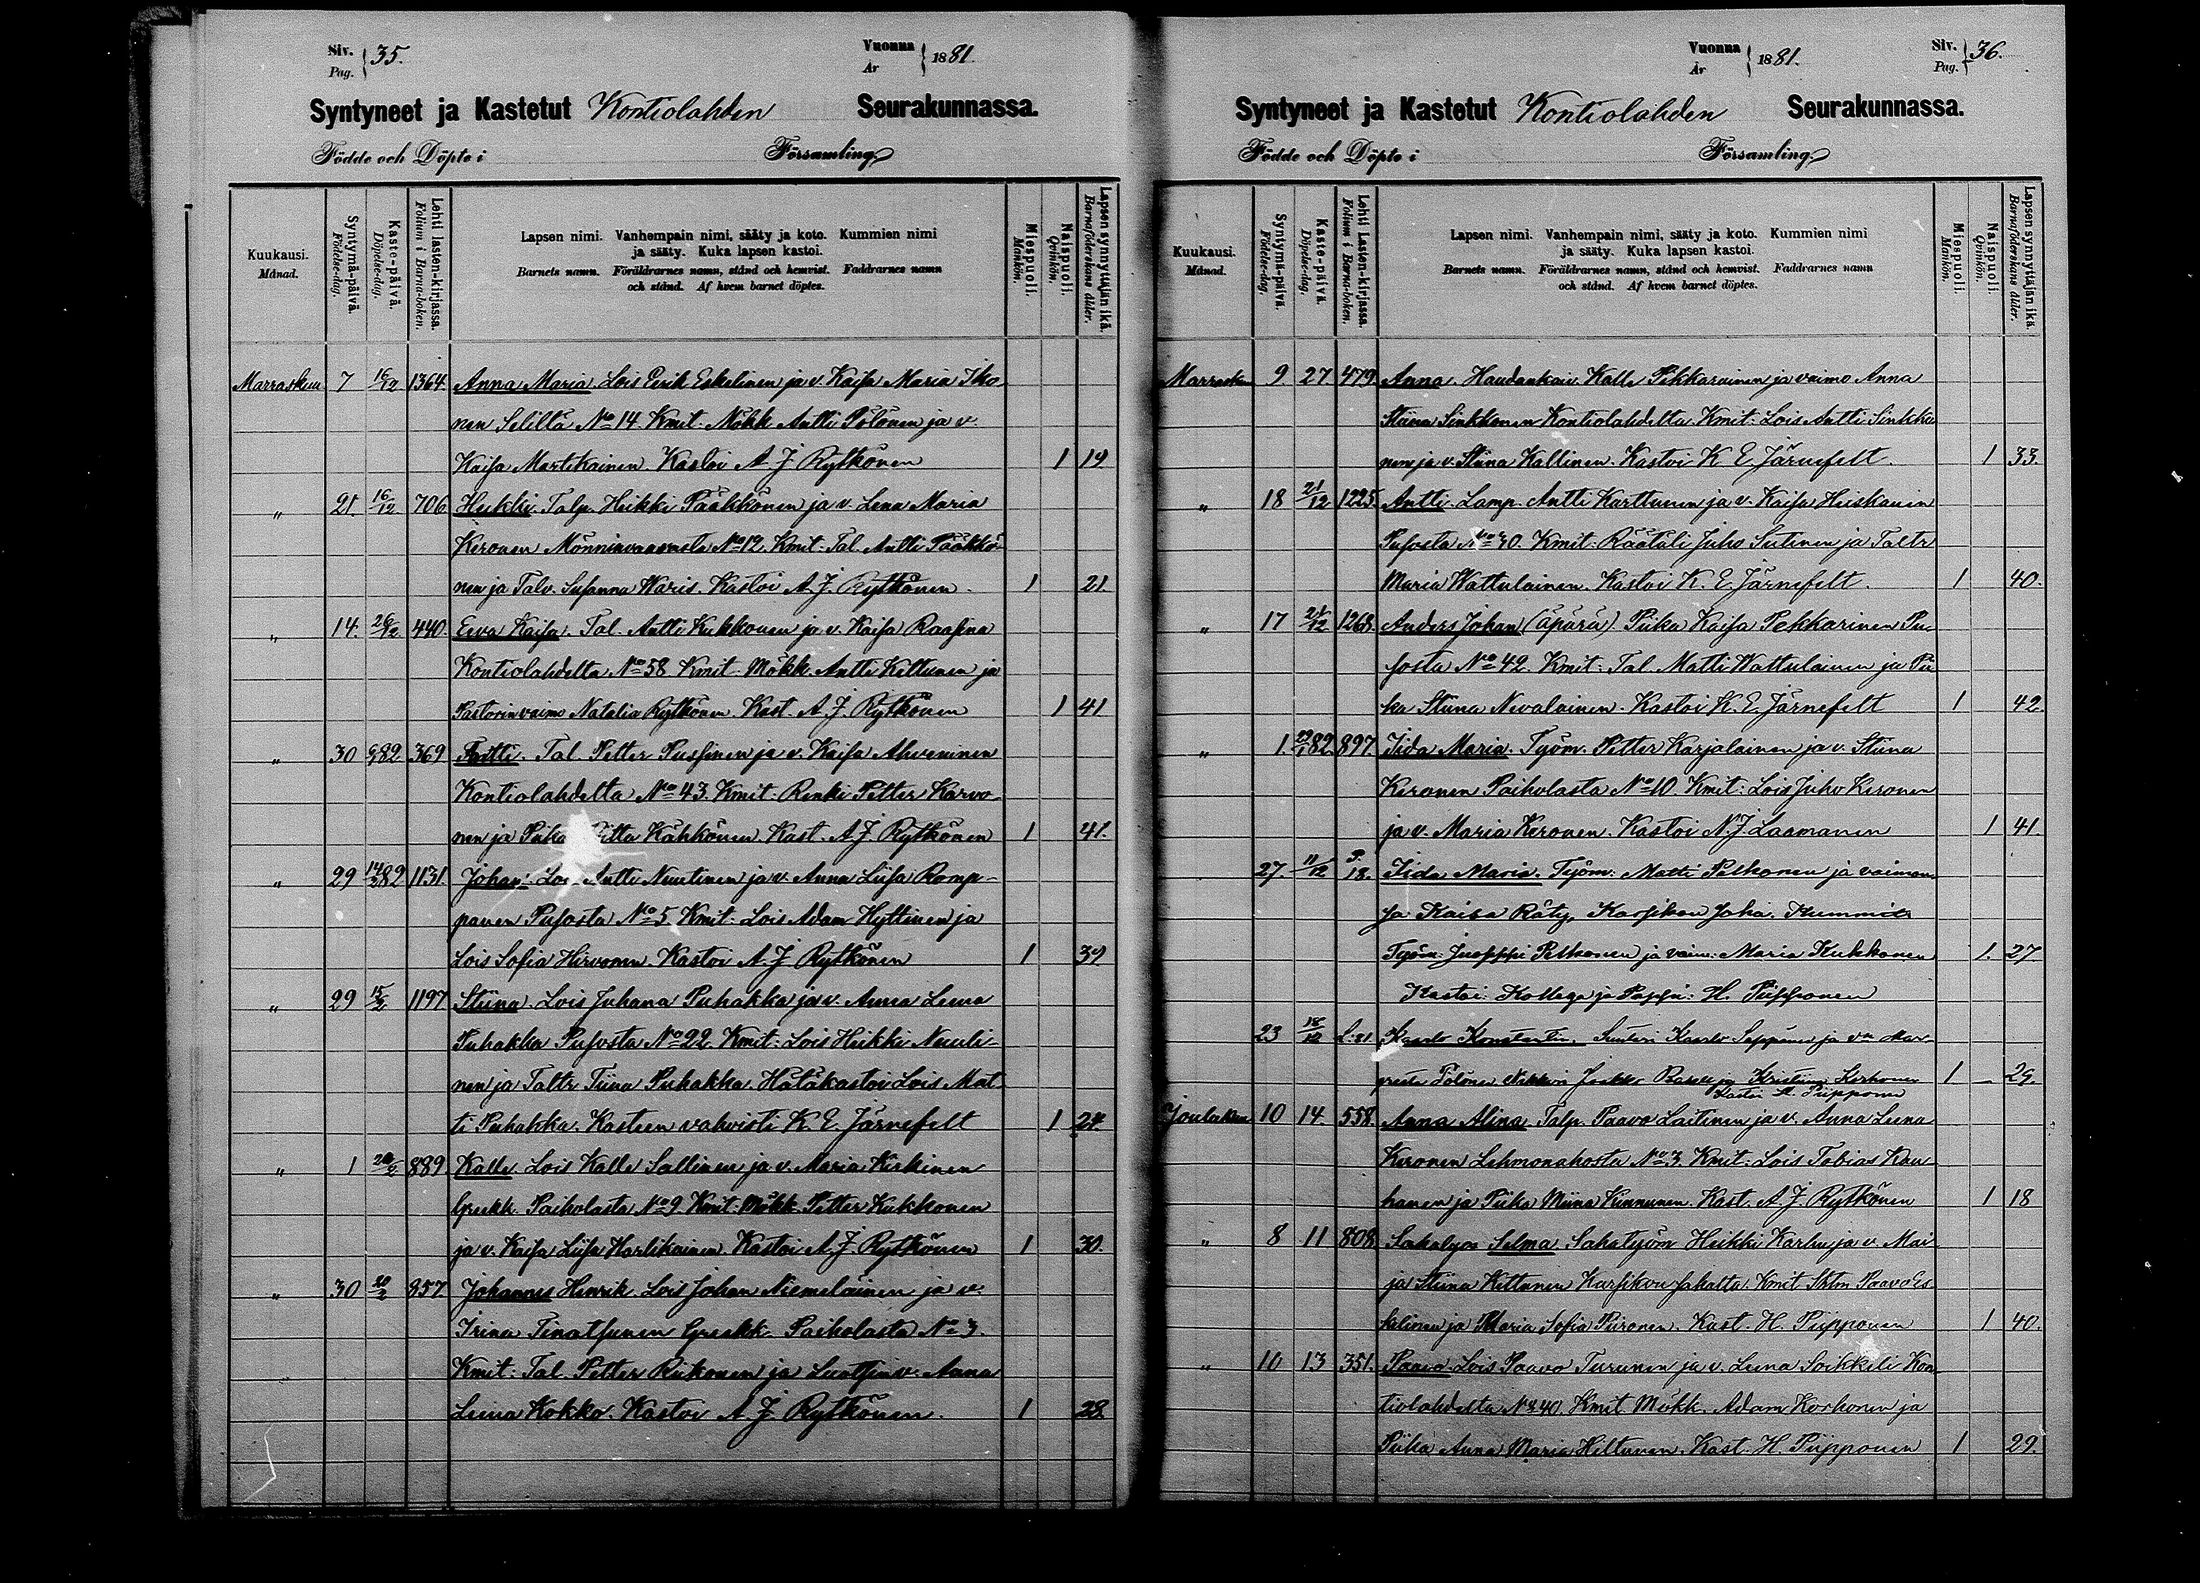 Siv. Pag. } 35.
Vuonna År } 1881.
Syntyneet ja Kastetut Kontiolahden Seurakunnassa.
Födde och Döpte i Församling
Kuukausi. Månad.
Syntymä-päivä. Födelse-dag.
Kaste-päivä. Döpelse-dag.
Lehti lasten-kirjassa. Folium i Barna-boken.
Lapsen nimi. Vanhempain nimi, sääty ja koto. Kummien nimi
ja sääty. Kuka lapsen kastoi.
Barnets namn. Föräldrarnes namn, stånd och hemvist. Faddrarnes namn
och stånd. Af hvem barnet döptes.
Miespuoli. Mankön.
Naispuoli. Qvinkön.
Lapsen synnyttäjän ikä. Barnaföderskans ålder.
Marraskuu 7 16/12 1364. Anna Maria. Lois Eerik Eskelinen ja v. Kaisa Maria Iko
nen Seliltä No 14. Kmit. Mökk. Antti Pölönen ja v.
Kaisa Martikainen. Kastoi A. J. Rytkönen 1 19
" 21. 16/12 706. Heikki. Talp. Heikki Pääkkönen ja v. Lena Maria
Keronen Mönninvaarasta No 12. Kmit: Tal. Antti Pääkkö
nen ja Talv. Susanna Waris. Kastoi A. J. Rytkönen. 1 21.
" 14. 26/12 440. Eeva Kaisa. Tal. Antti Kukkonen ja v. Kaisa Raasina
Kontiolahdelta No 58. Kmit: Mökk. Antti Kettunen ja
Pastorin vaimo Natalia Rytkönen. Kast. A. J. Rytkönen 1 41
" 30 82. 369 Antti. Tal. Petter Pussinen ja v. Kaisa Ahveninen
Kontiolahdelta No 43. Kmit: Renki Petter Karvo
nen ja Kähkönen. Kast. A. J. Rytkönen 1 41.
" 29 82 1131. Johan. Lois Antti Nuutinen ja v. Anna Liisa Romp-
panen Pusosta No 5. Kmit: Lois Adam Hyttinen ja
Lois Sofia Hirvonen. Kastoi A. J. Rytkönen 1 39
" 29 15/2 1197. Stiina. Lois Juhana Puhakka ja v. Anna Leena
Puhakka Pusosta No 22. Kmit: Lois Heikki Nuuti-
nen ja Taltr Tiina Puhakka. Hätäkastoi Lois Mat
ti Puhakka. Kasteen vahvisti K. E. Järnefelt 1 24.
" 1 889 Kalle. Lois Kalle Sallinen ja v. Maria Keskinen
Greekk. Paiholasta No 9. Kmit: Mökk. Petter Kukkonen
ja v. Kaisa Liisa Hartikainen. Kastoi A. J. Rytkönen 1 30.
" 30 857. Johannes Henrik. Lois Johan Niemeläinen ja v.
Irina Greekk. Paiholasta No 3.
Kmit: Tal. Petter Riikonen ja Anna
Leena Kokko. Kastoi A. J. Rytkönen. 1 28.
Siv. Pag. } 36.
Vuonna År } 1881.
Syntyneet ja Kastetut Kontiolahden Seurakunnassa.
Födde och Döpte i Församling
Kuukausi. Månad.
Syntymä-päivä. Födelse-dag.
Kaste-päivä. Döpelse-dag.
Lehti Lasten-kirjassa. Folium i Barna-boken.
Lapsen nimi. Vanhempain nimi, sääty ja koto. Kummien nimi
ja sääty. Kuka lapsen kastoi.
Barnets namn. Föräldrarnes namn, stånd och hemvist. Faddrarnes namn
och stånd. Af hvem barnet döptes.
Miespuoli. Mankön.
Naispuoli. Qvinkön.
Lapsen synnyttäjän ikä. Barnaföderskans ålder.
Marrask. 9 27 479. Anna. Haudankaiv. Kalle Pikkarainen ja vaimo Anna
Stiina Sinkkonen Kontiolahdelta. Kmit: Lois Antti Sinkko
nen ja v. Stiina Kallinen. Kastoi K. E. Järnefelt. 1 33.
" 18 21/12 1225. Antti. Lamp. Antti Karttunen ja v. Kaisa Heiskanen
Pusosta No 30. Kmit: Räätäli Juho Sutinen ja Taltr
Maria Wattulainen. Kastoi K. E. Järnefelt. 1 40.
" 17 21/12 1268. Anders Johan (äpärä). Piika Kaisa Pekkarinen Pu
sosta No 42. Kmit: Tal. Matti Wattulainen ja Pii
ka Stiina Nevalainen. Kastoi K. E. Järnefelt 1 42.
" 1. 82. 897. Iida Maria. Työm. Petter Karjalainen ja v. Stiina
Keronen Paiholasta No 10. Kmit: Lois Juho Keronen
ja v. Maria Keronen. Kastoi N. J. Laamanen 1 41
27. 11/12 P. 18. Iida Maria. Työm: Matti Pelkonen ja vaimon
sa Kaisa Räty, Karsikon saha. Kummit
Työm: Juoppi Pelkonen ja vaim: Maria Kukkonen 1. 27
Kastoi Kollega ja Pappi: H. Piipponen
23 18/12 L: 81. Kaarlo Konstantin. Suutari Kaarlo Seppänen ja vn Mar-
greta Pölönen ja Kristiina Korhonen 1 29.
Kastoi H. Piipponen
Joulukuu 10 14. 558. Anna Alina. Talp. Paavo Laitinen ja v. Anna Leena
Keronen Lehmonahosta No 3. Kmit: Lois Tobias Kau
hanen ja Piika Miina Kinnunen. Kast. A. J. Rytkönen 1 18
" 8 11 808. Selma. Sahatyöm. Heikki Karhu ja v. Mai
ja Stiina Kettunen Karsikon sahalta. Kmit Shtm Paavo Es
kelinen ja Maria Sofia Piironen. Kast. H. Piipponen 1 40.
" 10 13 351. Paavo. Lois Paavo Turunen ja v. Leena Soikkeli Kon
tiolahdelta No 40. Kmit Mökk. Adam Korhonen ja
Piika Anna Maria Hiltunen. Kast. H. Piipponen 1 29.